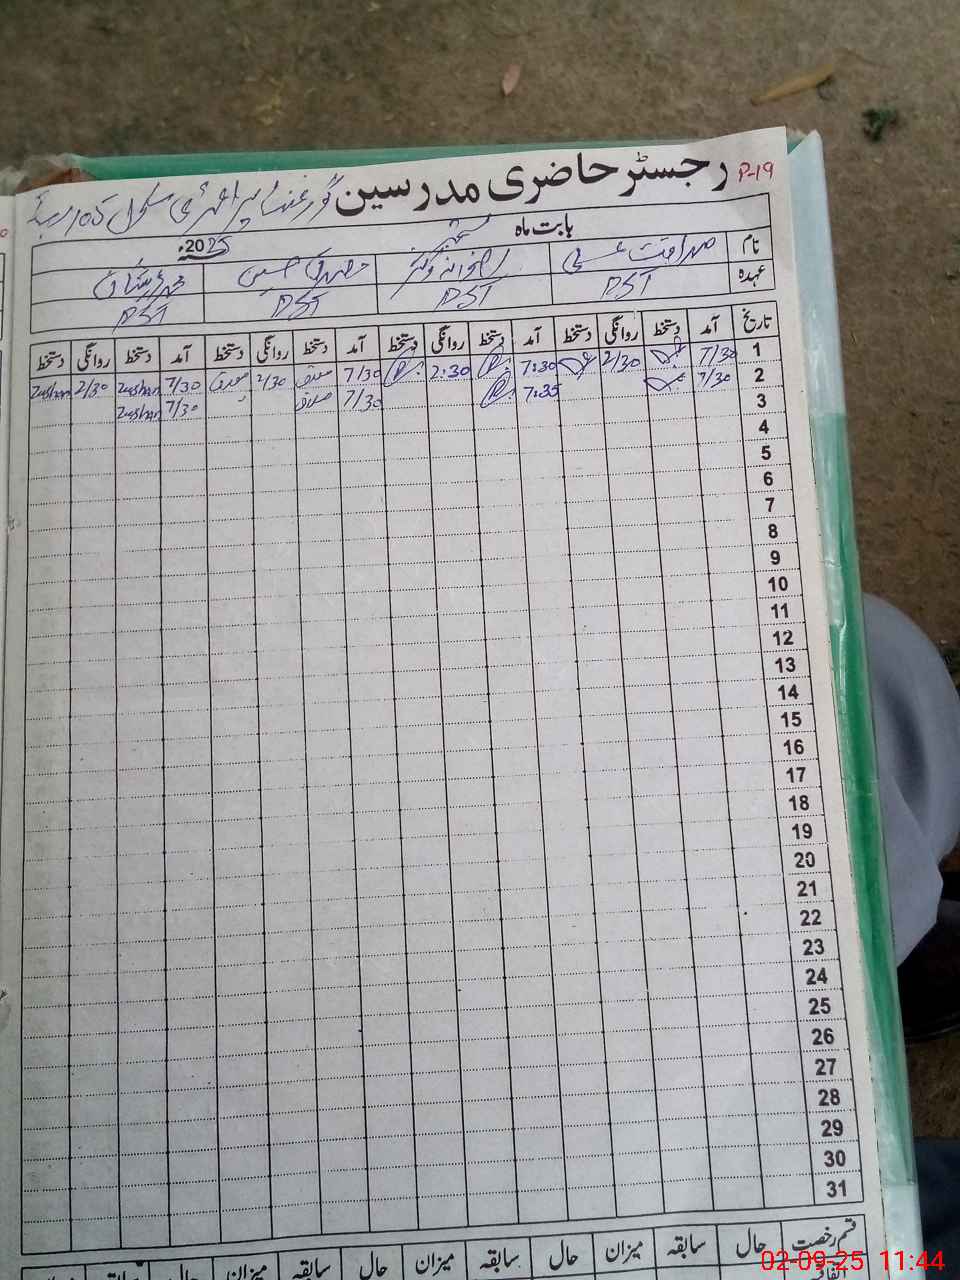 P-19 رجسٹر حاضری مدرسین گورنمنٹ پرائمری سکول
بابت ماہ ستمبر 2025ء
نام صداقت علی رضوانہ کوثر صدیق حسین
عہدہ PST PST PST PST
تاریخ آمد دستخط روانگی دستخط آمد دستخط روانگی دستخط آمد دستخط روانگی دستخط آمد دستخط روانگی دستخط
1 7/30 2/30 7:30 2:30 7/30 صدیق 2/30 صدیق 7/30 Zeshan 2/30 Zeshan
2 7/30 7:35 7/30 صدیق 7/30 Zeshan
3
4
5
6
7
8
9
10
11
12
13
14
15
16
17
18
19
20
21
22
23
24
25
26
27
28
29
30
31
قسم رخصت حال سابقہ میزان حال سابقہ میزان حال سابقہ میزان حال
02-09-25 11:44